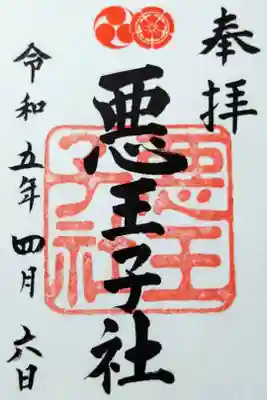 奉拝
悪王子社
悪王
子社
令和五年四月六日